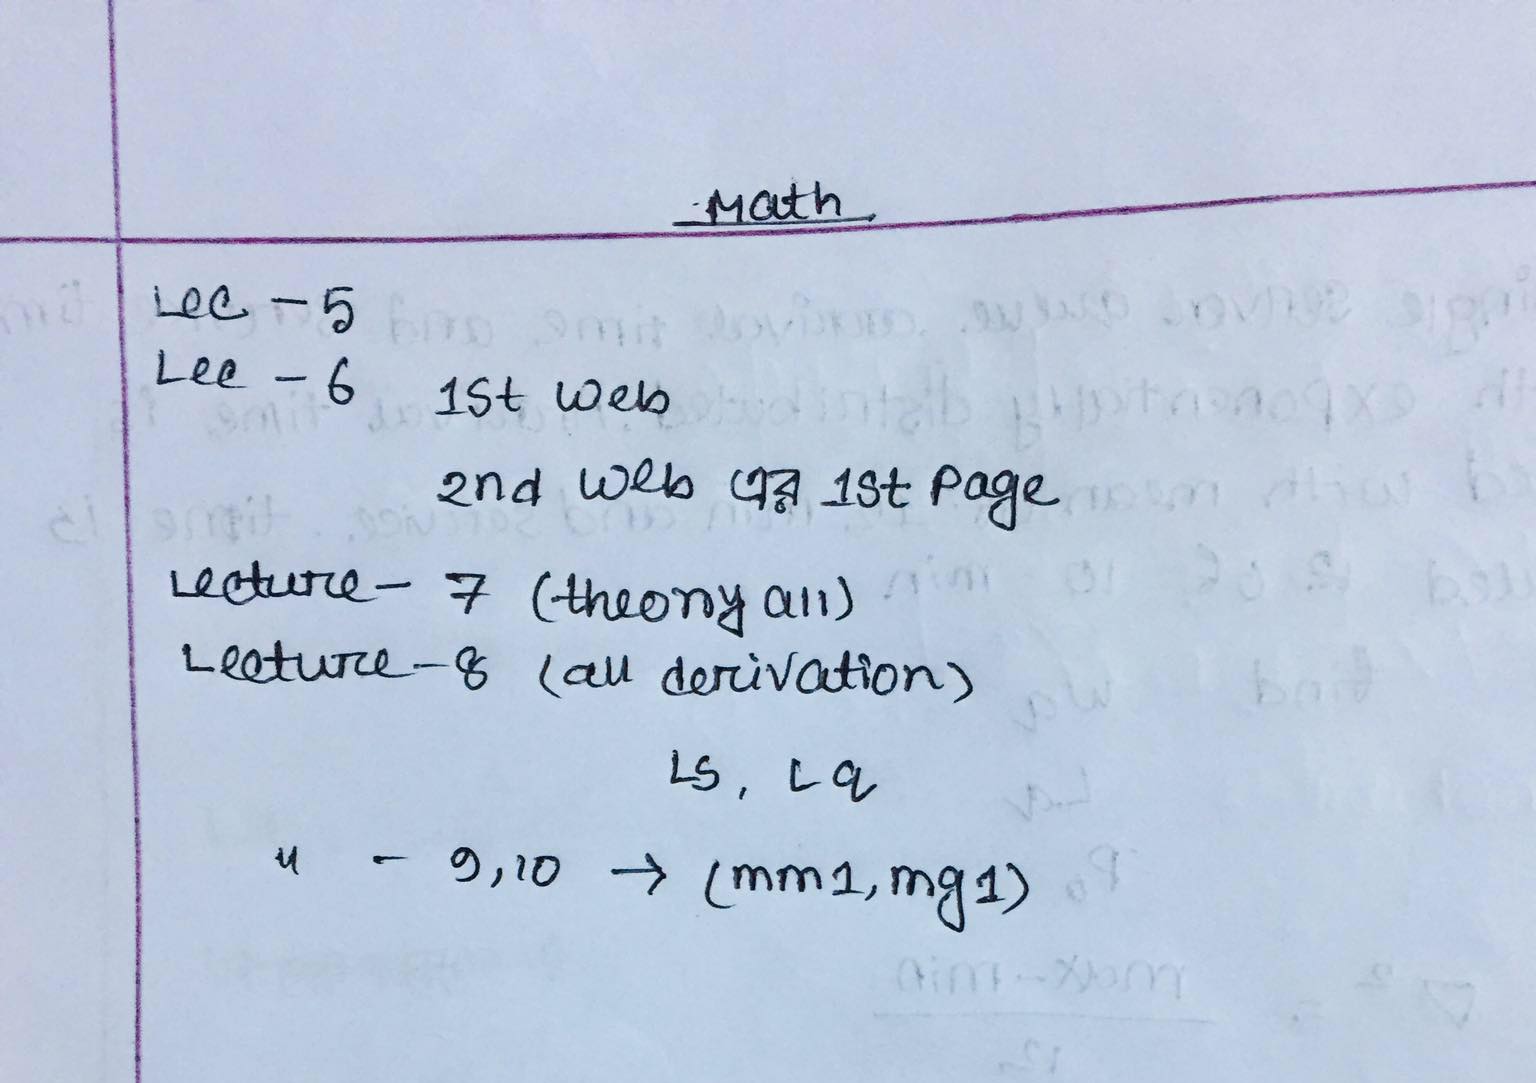 Math
Lec - 5
Lec - 6 1st web
2nd web এর 1st Page
Lecture - 7 (theory all)
Lecture - 8 (all derivation)
Ls, Lq
" - 9,10 → (mm1, mg1)